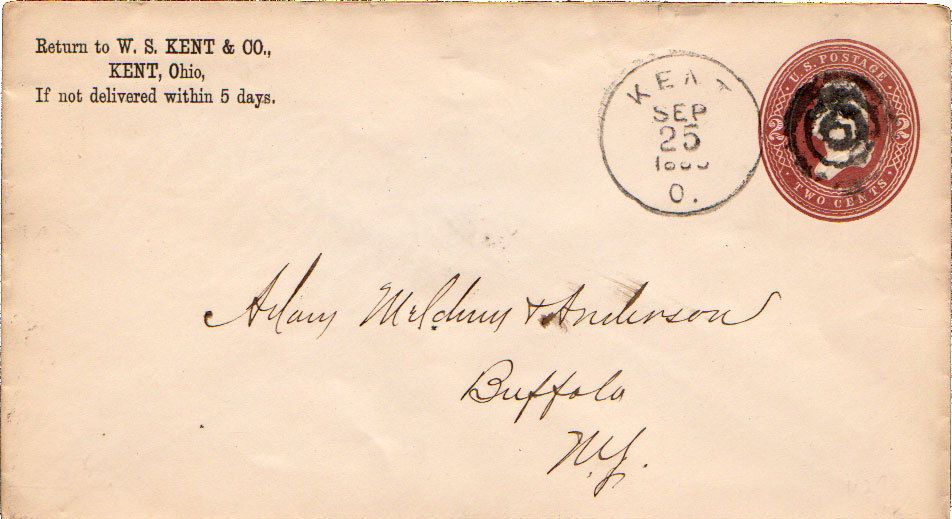 Return to W. S. KENT & CO.,
KENT, Ohio,
If not delivered within 5 days.
KENT
SEP
25
O.
U.S. POSTAGE
2 2
TWO CENTS
Adam Meldrum & Anderson
Buffalo
N.Y.